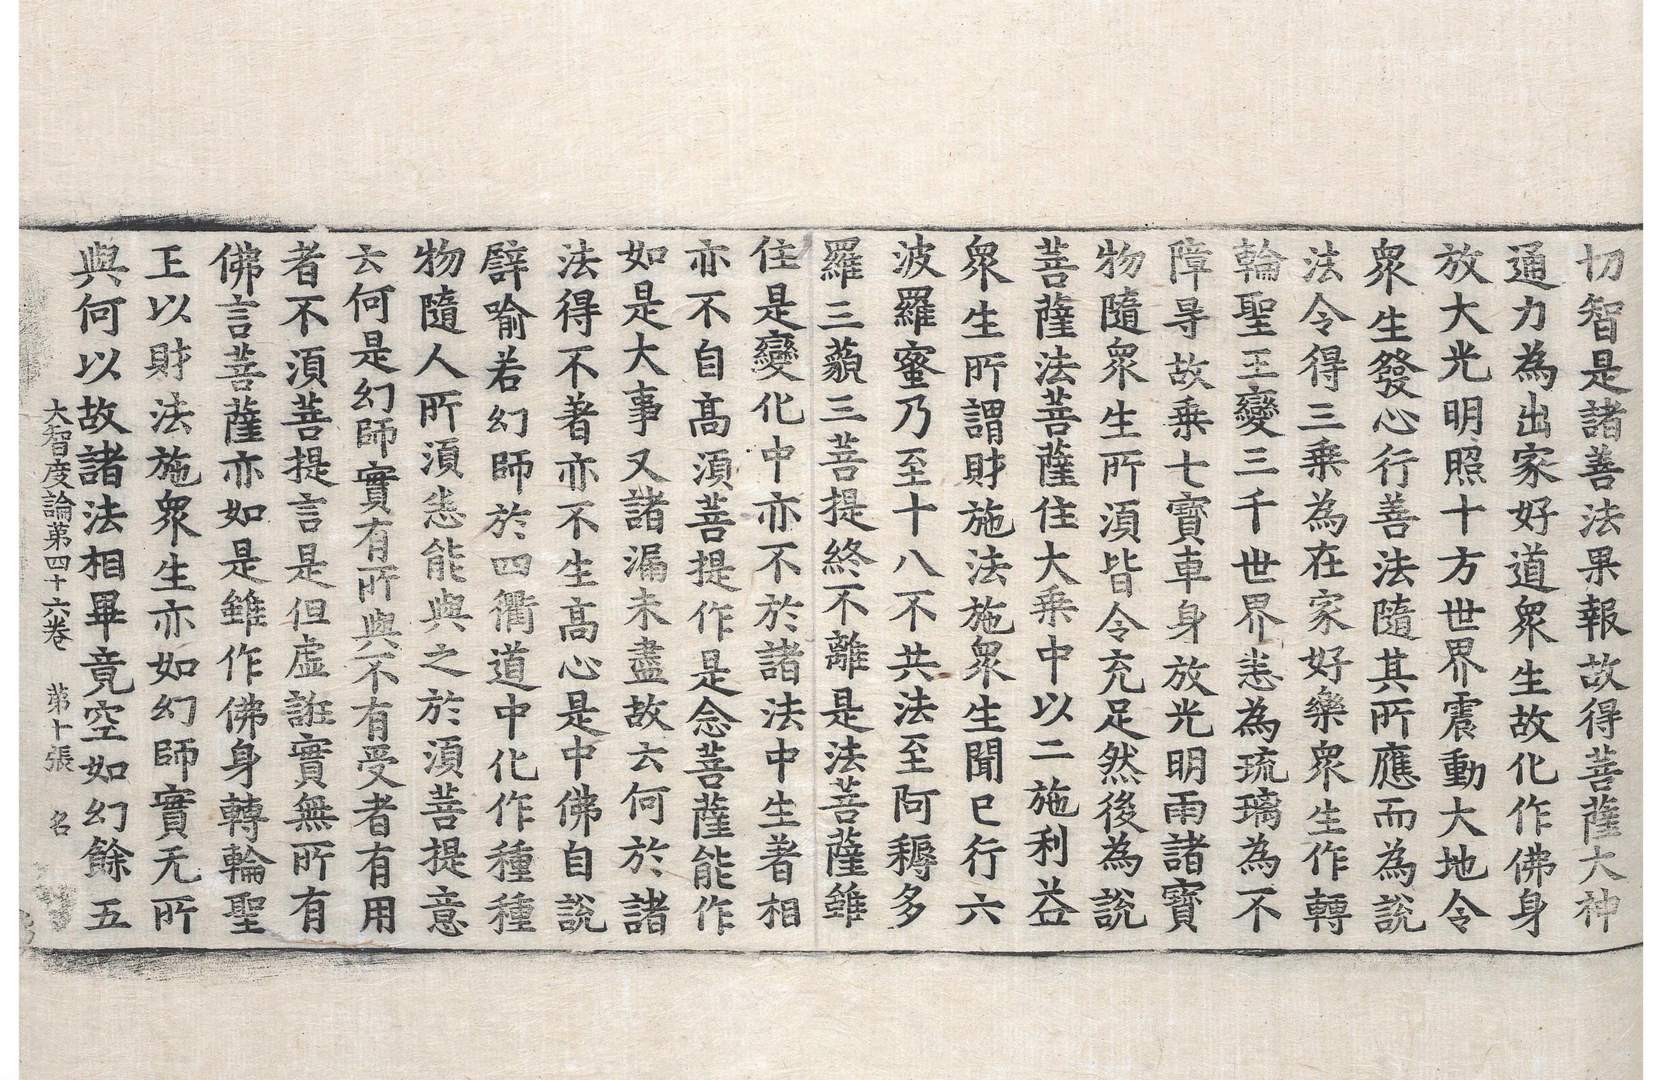 切智是諸善法果報故得菩薩大神
通力為出家好道衆生故化作佛身
放大光明照十方世界震動大地令
衆生發心行善法隨其所應而為說
法令得三乗為在家好樂衆生作轉
輪聖王變三千世界悉為琉璃為不
障㝵故乗七寶車身放光明雨諸寶
物隨衆生所須皆令充足然後為說
菩薩法菩薩住大乗中以二施利益
衆生所謂財施法施衆生聞已行六
波羅蜜乃至十八不共法至阿耨多
羅三藐三菩提終不離是法菩薩雖
住是變化中亦不於諸法中生著相
亦不自髙須菩提作是念菩薩能作
如是大事又諸漏未盡故云何於諸
法得不著亦不生髙心是中佛自説
譬喻若幻師於四衢道中化作種種
物隨人所須悉能與之於須菩提意
云何是幻師實有所與不有受者有用
者不須菩提言是但虚誑實無所有
佛言菩薩亦如是雖作佛身轉輪聖
王以財法施衆生亦如幻師實无所
與何以故諸法相畢竟空如幻餘五
大智度論第四十六卷 第十張 名